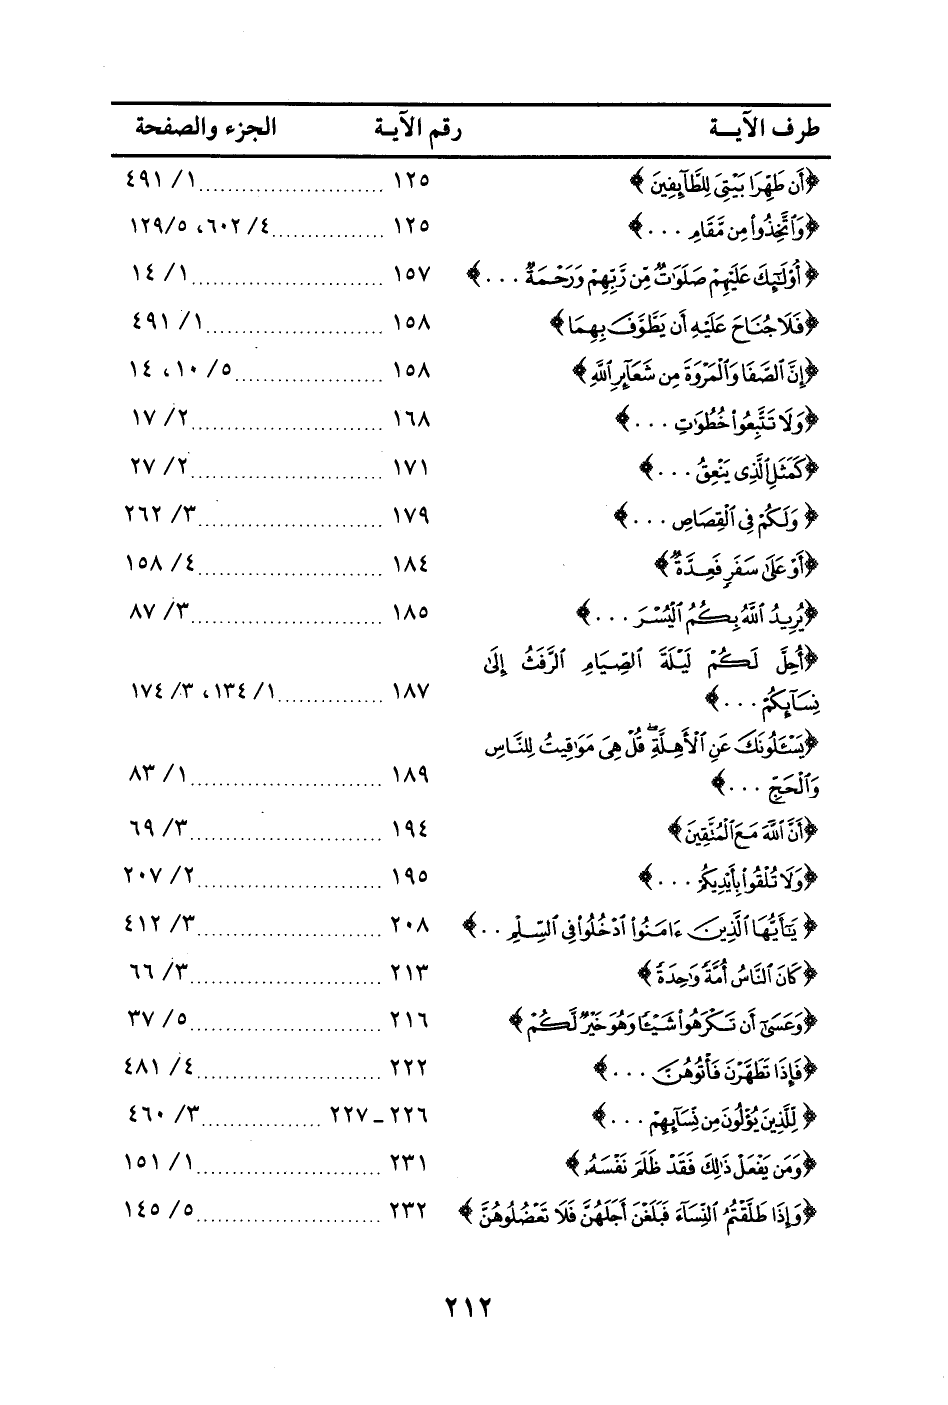 طرف الآيــة رقم الآيـة الجزء والصفحة
﴿أَن طَهِّرَا بَيْتِىَ لِلطَّآئِفِينَ ﴾ ١٢٥ ............ ١/ ٤٩١
﴿وَٱتَّخِذُوا۟ مِن مَّقَامِ ...﴾ ١٢٥ ............ ٤/ ٦٠٢، ١٢٩/٥
﴿أُو۟لَـٰٓئِكَ عَلَيْهِمْ صَلَوَٰتٌ مِّن رَّبِّهِمْ وَرَحْمَةٌ ...﴾ ١٥٧ ............ ١/ ١٤
﴿فَلَا جُنَاحَ عَلَيْهِ أَن يَطَّوَّفَ بِهِمَا﴾ ١٥٨ ............ ١/ ٤٩١
﴿إِنَّ ٱلصَّفَا وَٱلْمَرْوَةَ مِن شَعَآئِرِ ٱللَّهِ﴾ ١٥٨ ............ ٥/ ١٠، ١٤
﴿وَلَا تَتَّبِعُوا۟ خُطُوَٰتِ ...﴾ ١٦٨ ............ ٢/ ١٧
﴿كَمَثَلِ ٱلَّذِى يَنْعِقُ ...﴾ ١٧١ ............ ٢/ ٢٧
﴿ وَلَكُمْ فِى ٱلْقِصَاصِ ...﴾ ١٧٩ ............ ٣/ ٢٦٢
﴿أَوْ عَلَىٰ سَفَرٍ فَعِدَّةٌ﴾ ١٨٤ ............ ٤/ ١٥٨
﴿يُرِيدُ ٱللَّهُ بِكُمُ ٱلْيُسْرَ ...﴾ ١٨٥ ............ ٣/ ٨٧
﴿أُحِلَّ لَكُمْ لَيْلَةَ ٱلصِّيَامِ ٱلرَّفَثُ إِلَىٰ
نِسَآئِكُمْ ...﴾ ١٨٧ ............ ١/ ١٣٤، ٣/ ١٧٤
﴿يَسْـَٔلُونَكَ عَنِ ٱلْأَهِلَّةِ ۖ قُلْ هِىَ مَوَٰقِيتُ لِلنَّاسِ
وَٱلْحَجِّ ...﴾ ١٨٩ ............ ١/ ٨٣
﴿أَنَّ ٱللَّهَ مَعَ ٱلْمُتَّقِينَ﴾ ١٩٤ ............ ٣/ ٦٩
﴿وَلَا تُلْقُوا۟ بِأَيْدِيكُمْ ...﴾ ١٩٥ ............ ٢/ ٢٠٧
﴿ يَـٰٓأَيُّهَا ٱلَّذِينَ ءَامَنُوا۟ ٱدْخُلُوا۟ فِى ٱلسِّلْمِ ..﴾ ٢٠٨ ............ ٣/ ٤١٢
﴿كَانَ ٱلنَّاسُ أُمَّةً وَٰحِدَةً﴾ ٢١٣ ............ ٣/ ٦٦
﴿وَعَسَىٰٓ أَن تَكْرَهُوا۟ شَيْـًٔا وَهُوَ خَيْرٌ لَّكُمْ﴾ ٢١٦ ............ ٥/ ٣٧
﴿فَإِذَا تَطَهَّرْنَ فَأْتُوهُنَّ ...﴾ ٢٢٢ ............ ٤/ ٤٨١
﴿ لِلَّذِينَ يُؤْلُونَ مِن نِّسَآئِهِمْ ...﴾ ٢٢٦ ــ ٢٢٧ ............ ٣/ ٤٦٠
﴿وَمَن يَفْعَلْ ذَٰلِكَ فَقَدْ ظَلَمَ نَفْسَهُۥ﴾ ٢٣١ ............ ١/ ١٥١
﴿وَإِذَا طَلَّقْتُمُ ٱلنِّسَآءَ فَبَلَغْنَ أَجَلَهُنَّ فَلَا تَعْضُلُوهُنَّ ﴾ ٢٣٢ ............ ٥/ ١٤٥
٢١٢